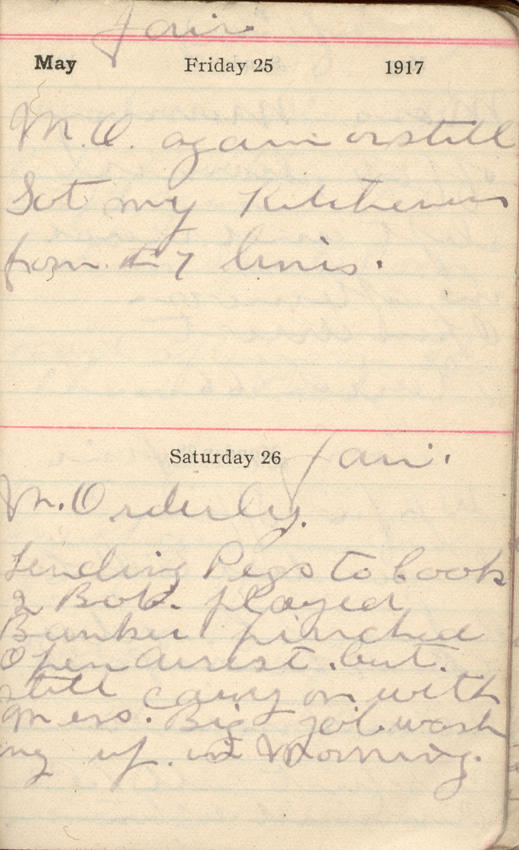 Fair
May Friday 25 1917
M.O. again or still
Got my Kitchener
from lines.
Saturday 26 Fair.
M. Orderly.
Lending Pegs to Cook
2 Bob. played
Banker pinched
Open arrest. but.
still carry on with
mess. Big job wash
ng up. in Morning.